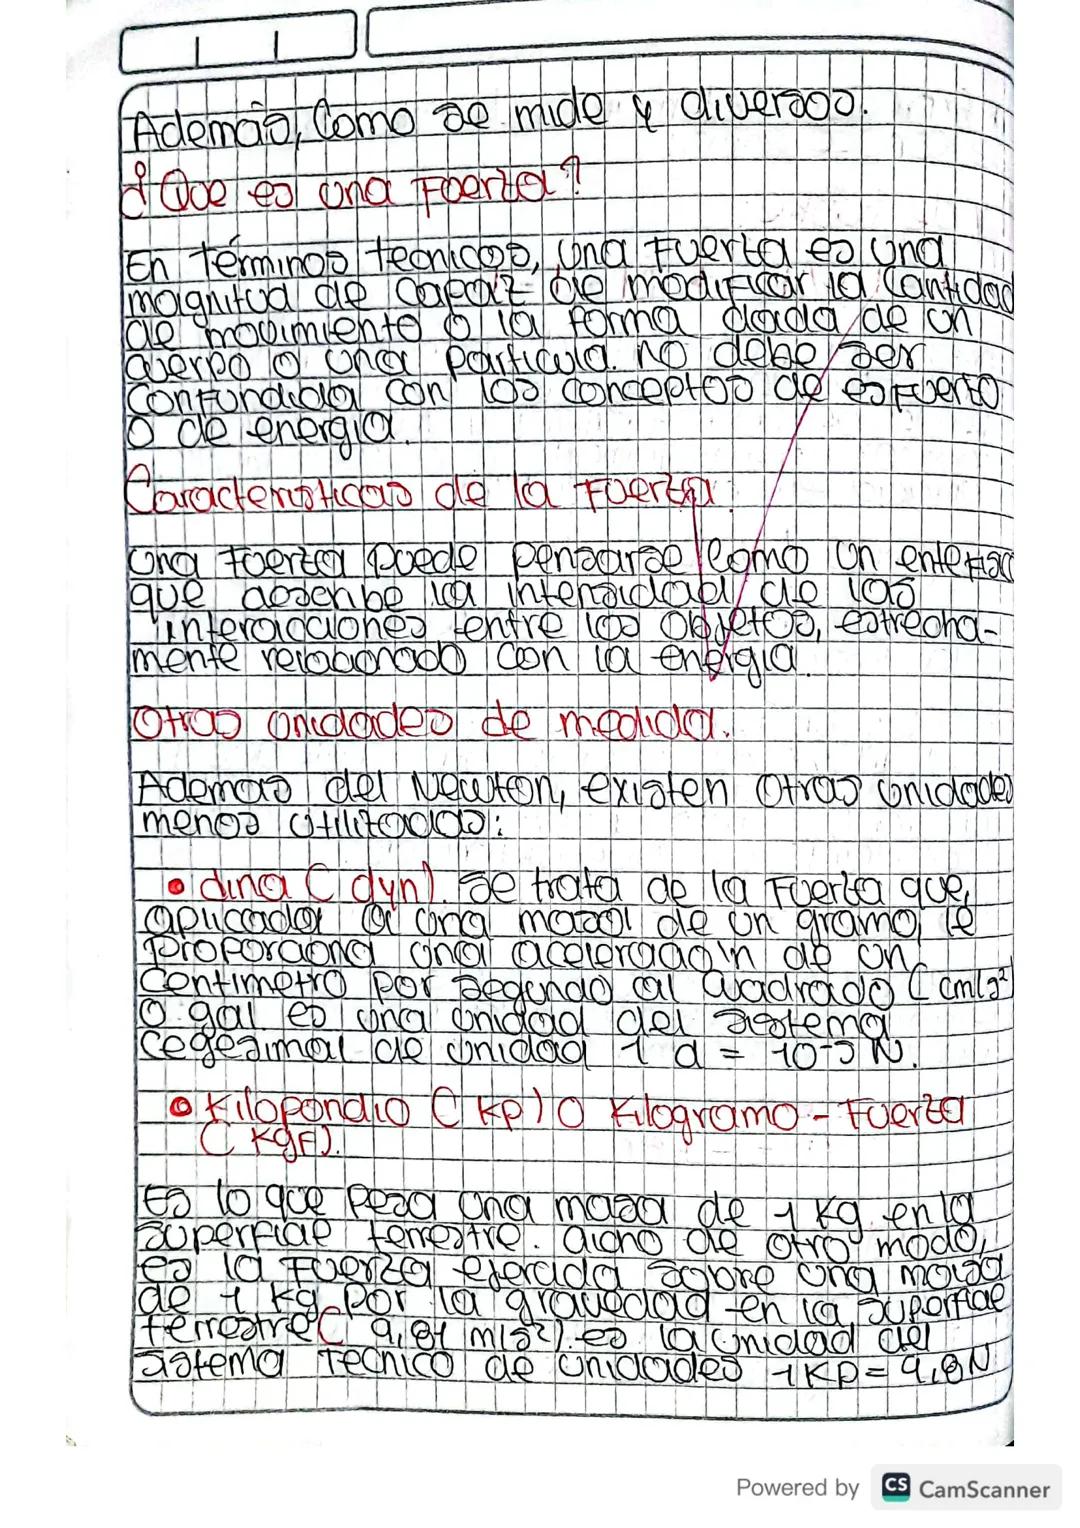 Además, Como se mide y diversos.
¿Que es una Fuerza?
En términos tecnicos, una fuerza es una
magnitud de capaz de modificar la Cantidad
de movimiento o la forma dada de un
cuerpo o una particula. no debe ser
Confundida con los conceptos de esfuerzo
o de energia.
Caracteristicas de la Fuerza.
Una fuerza puede pensarse como un ente
que describe la intensidad de las
interacciones entre los objetos, estrecha-
mente relacionado con la energia.
Otras unidades de medida.
Ademas del Newton, existen otras unidades
menos utilizadas:
• dina ( dyn). Se trata de la Fuerza que,
aplicada a una masa de un gramo, le
proporciona una aceleración de un
Centimetro por segundo al cuadrado ( cm/s²)
O gal es una unidad del sistema
cegesimal de unidad 1 d = 10-5 N.
• Kilopondio ( kp) o Kilogramo - Fuerza
( kgF).
Es lo que pesa una masa de 1 Kg en la
superficie terrestre. dicho de otro modo,
es la Fuerza ejercida sobre una masa
de 1 kg por la gravedad en la superficie
terrestre( 9,81 m/s²). es la unidad del
sistema Tecnico de unidades 1 KP = 9,8N
Powered by CS CamScanner